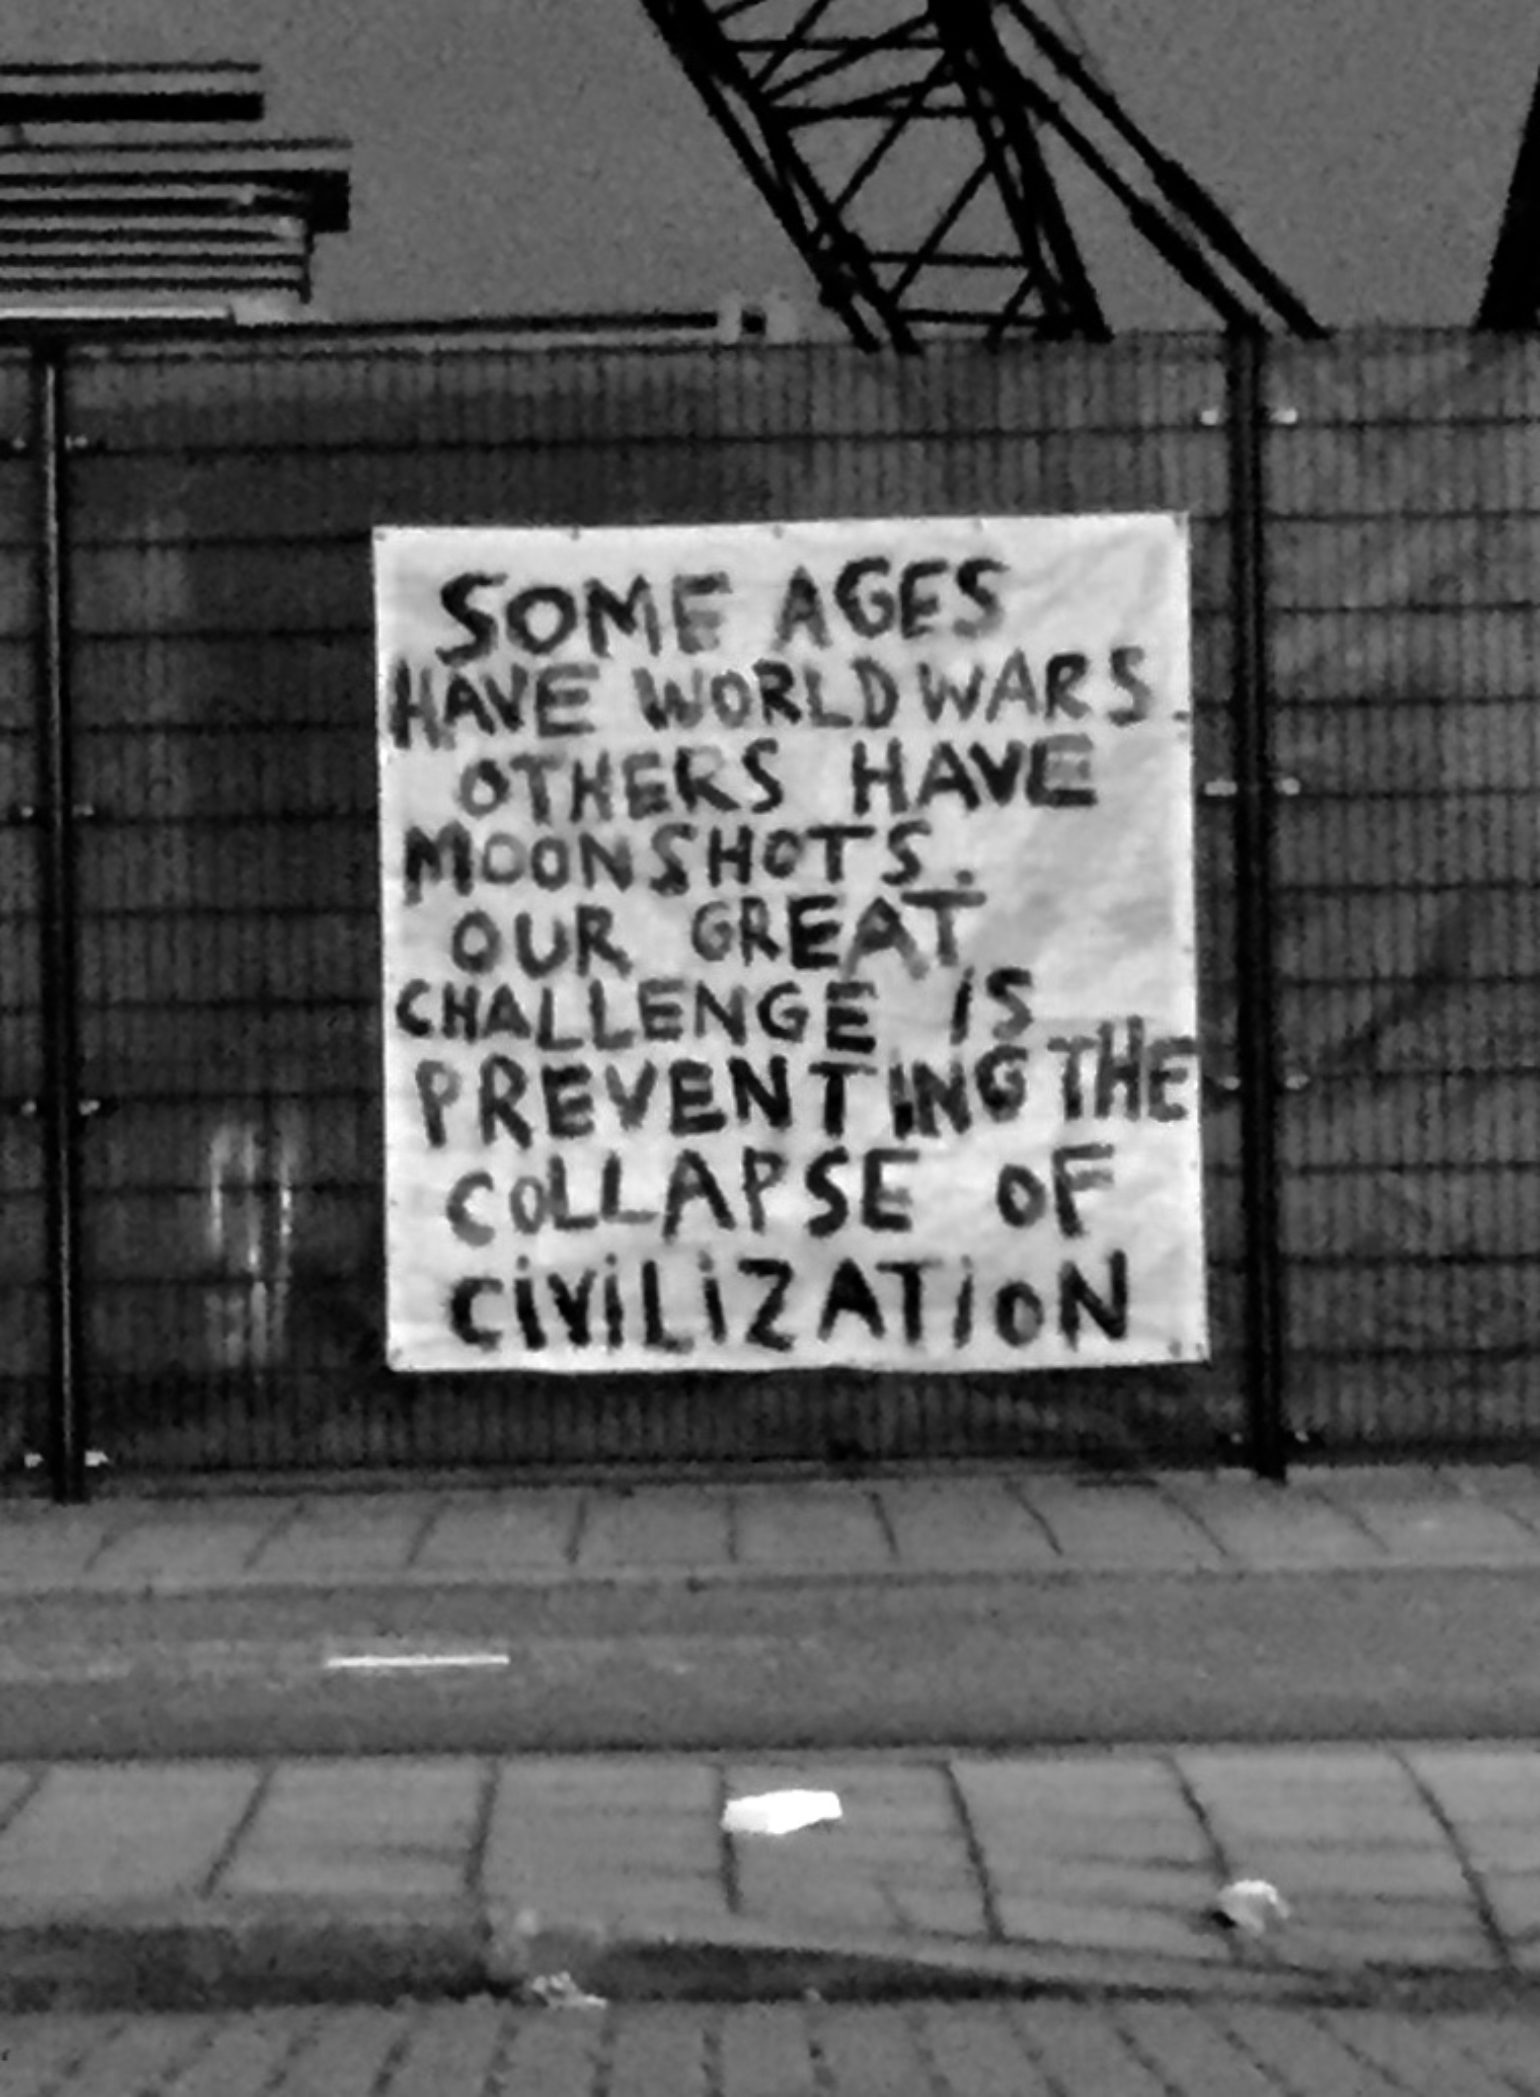 SOME AGES
HAVE WORLD WARS.
OTHERS HAVE
MOONSHOTS.
OUR GREAT
CHALLENGE IS
PREVENTING THE
COLLAPSE OF
CiViLiZATiON